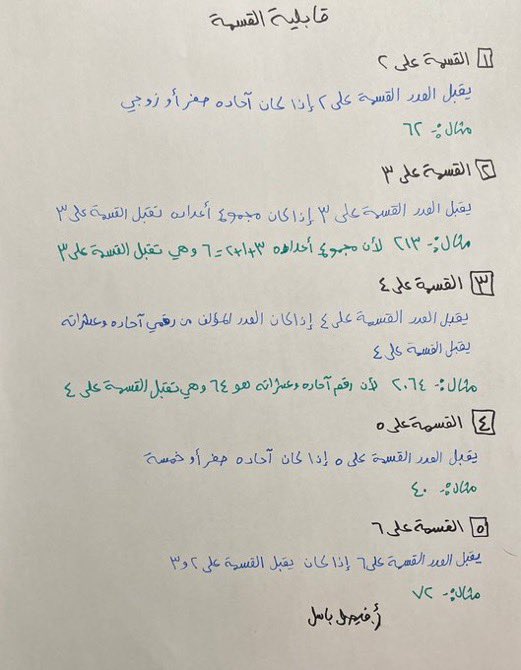 قابلية القسمة
١ القسمة على ٢
يقبل العدد القسمة على ٢ إذا كان آحاده صفر أو زوجي
مثال:- ٦٢
٢ القسمة على ٣
يقبل العدد القسمة على ٣ إذا كان مجموع أعداده تقبل القسمة على ٣
مثال:- ٢١٣ لأن مجموع أعداده ٣+١+٢=٦ وهي تقبل القسمة على ٣
٣ القسمة على ٤
يقبل العدد القسمة على ٤ إذا كان العدد المؤلف من رقمي آحاده وعشراته
يقبل القسمة على ٤
مثال:- ٢٠٦٤ لأن رقم آحاده وعشراته هو ٦٤ وهي تقبل القسمة على ٤
٤ القسمة على ٥
يقبل العدد القسمة على ٥ إذا كان آحاده صفر أو خمسة
مثال:- ٤٠
٥ القسمة على ٦
يقبل العدد القسمة على ٦ إذا كان يقبل القسمة على ٢ و ٣
مثال:- ٧٢
أ. فيصل باسل